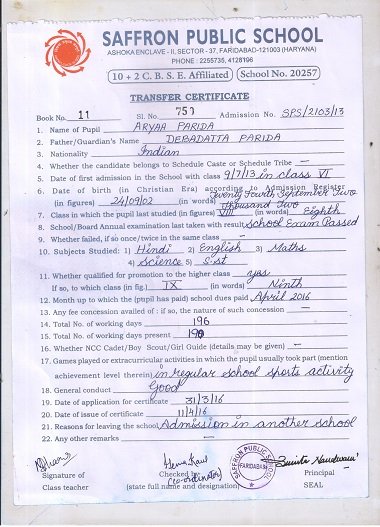 SAFFRON PUBLIC SCHOOL
ASHOKA ENCLAVE - II, SECTOR - 37, FARIDABAD-121003 (HARYANA)
PHONE : 2255735, 4128196
10 + 2 C. B. S. E. Affiliated School No. 20257
TRANSFER CERTIFICATE
Book No. 11 Sl. No. 750 Admission No. SPS/2103/13
1. Name of Pupil ARYAA PARIDA
2. Father/Guardian's Name DEBADATTA PARIDA
3. Nationality Indian
4. Whether the candidate belongs to Schedule Caste or Schedule Tribe –
5. Date of first admission in the School with class 9/7/13 in class VI
6. Date of birth (in Christian Era) according to Admission Register
Twenty Fourth September Two
(in figures) 24/09/02 (in words) Thousand Two
7. Class in which the pupil last studied (in figures) VIII (in words) Eighth
8. School/Board Annual examination last taken with result School Exam Passed
9. Whether failed, if so once/twice in the same class –
10. Subjects Studied: 1) Hindi 2) English 3) Maths
4) Science 5) S.st
11. Whether qualified for promotion to the higher class yes
If so, to which class (in fig.) IX (in words) Ninth
12. Month up to which the (pupil has paid) school dues paid April 2016
13. Any fee concession availed of : if so, the nature of such concession –
14. Total No. of working days 196
15. Total No. of working days present 190
16. Whether NCC Cadet/Boy Scout/Girl Guide (details may be given) –
17. Games played or extracurricular activities in which the pupil usually took part (mention
achievement level therein) in regular school sports activity
18. General conduct Good
19. Date of application for certificate 31/3/16
20. Date of issue of certificate 11/4/16
21. Reasons for leaving the school Admission in another school
22. Any other remarks –
SAFFRON PUBLIC SCHOOL
FARIDABAD
Signature of Checked by Principal
(co-ordinator)
Class teacher (state full name and designation) SEAL